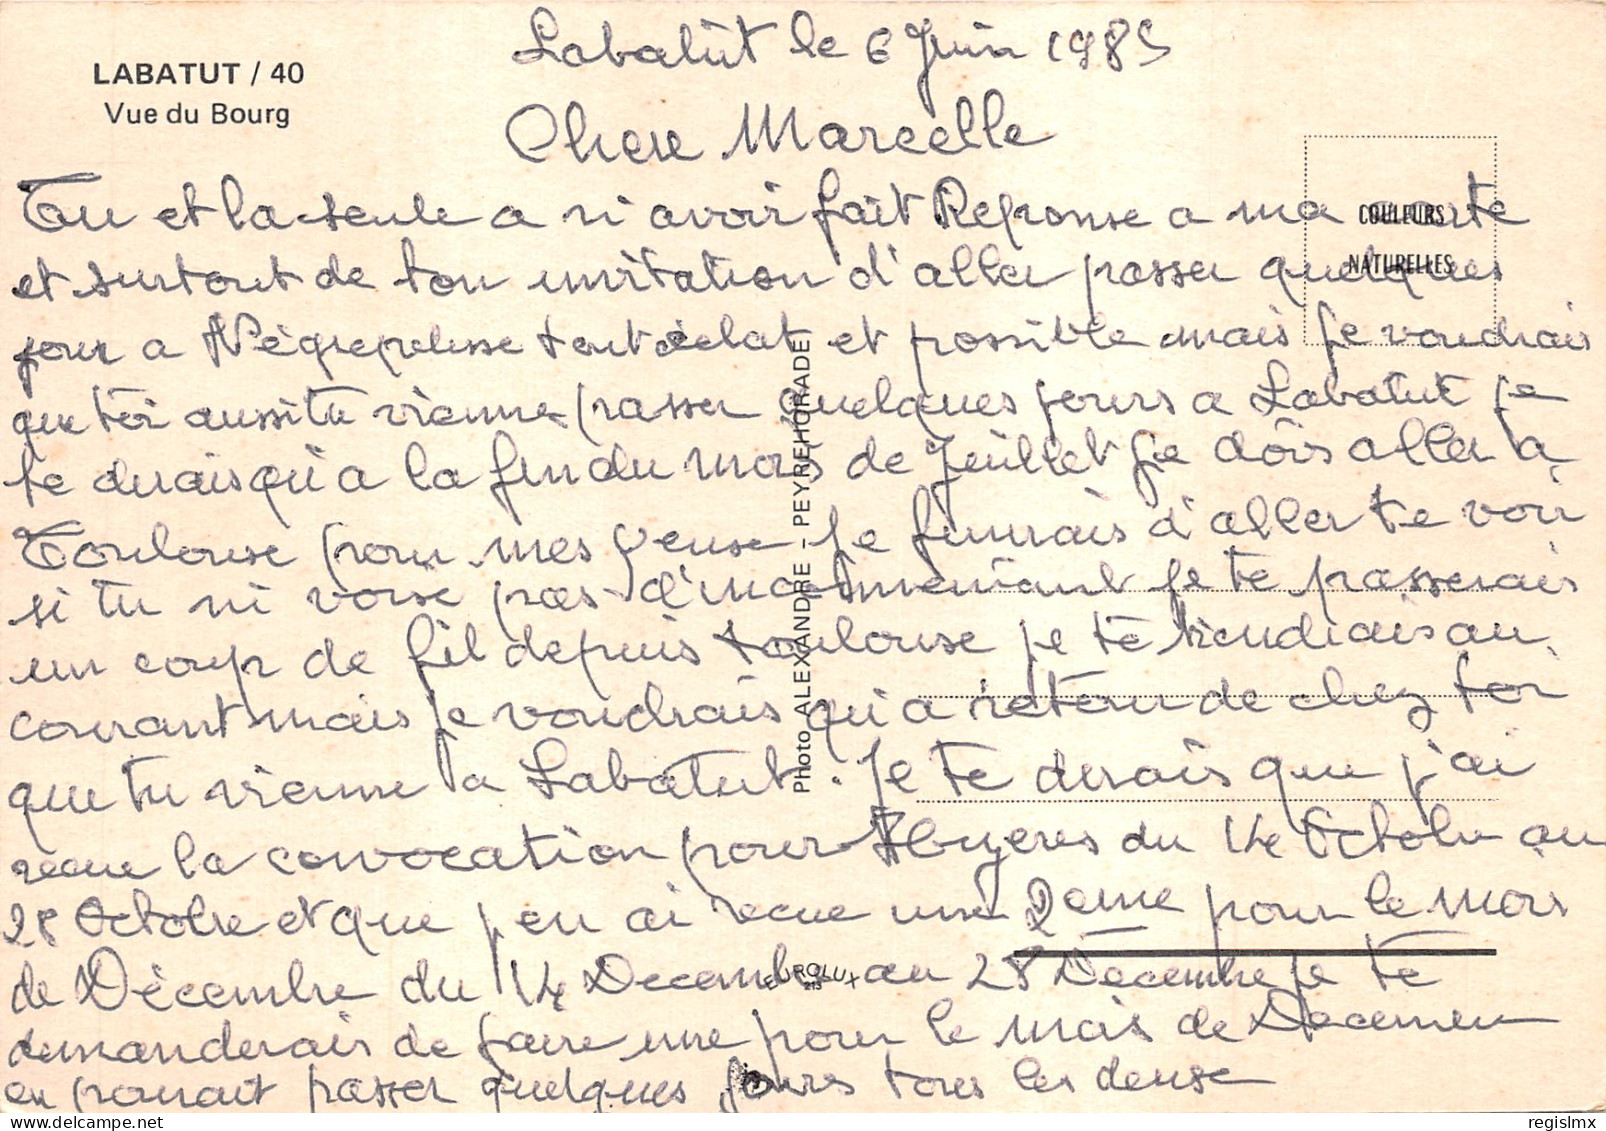 LABATUT / 40
Vue du Bourg
Labatût le 6 Juin 1985
Chere Marcelle
COULEURS
NATURELLES
Tu et la seule a n'i avoir fait Reponse a ma carte
et surtout de ton invitation d'aller passer quelques
jour a Négrepelisse tout et possible mais je voudrais
que toi aussi tu vienne passer quelques jours a Labatut je
te dirais qu'i a la fin du mois de Juillet je dois aller a
Toulouse pour mes yeuse je d'aller te voir
si tu ni voise pas d'inconveniant je te passerais
un coup de fil depuis toulouse je te tiendrais au
courant mais je voudrais qu'i a retour de chez toi
que tu vienne a Labatut. Je te dirais que j'ai
recue la convocation pour Hyeres du 14 Octobre au
28 Octobre et que j'en ai recue une 2eme pour le mois
de Décembre du 14 Decembre au 28 Decembre je te
demanderais de faire une pour le mois de
en pouvait passer quelques jours tous les deuse
Photo ALEXANDRE - PEYREHORADE
EUROLUX
regislmx